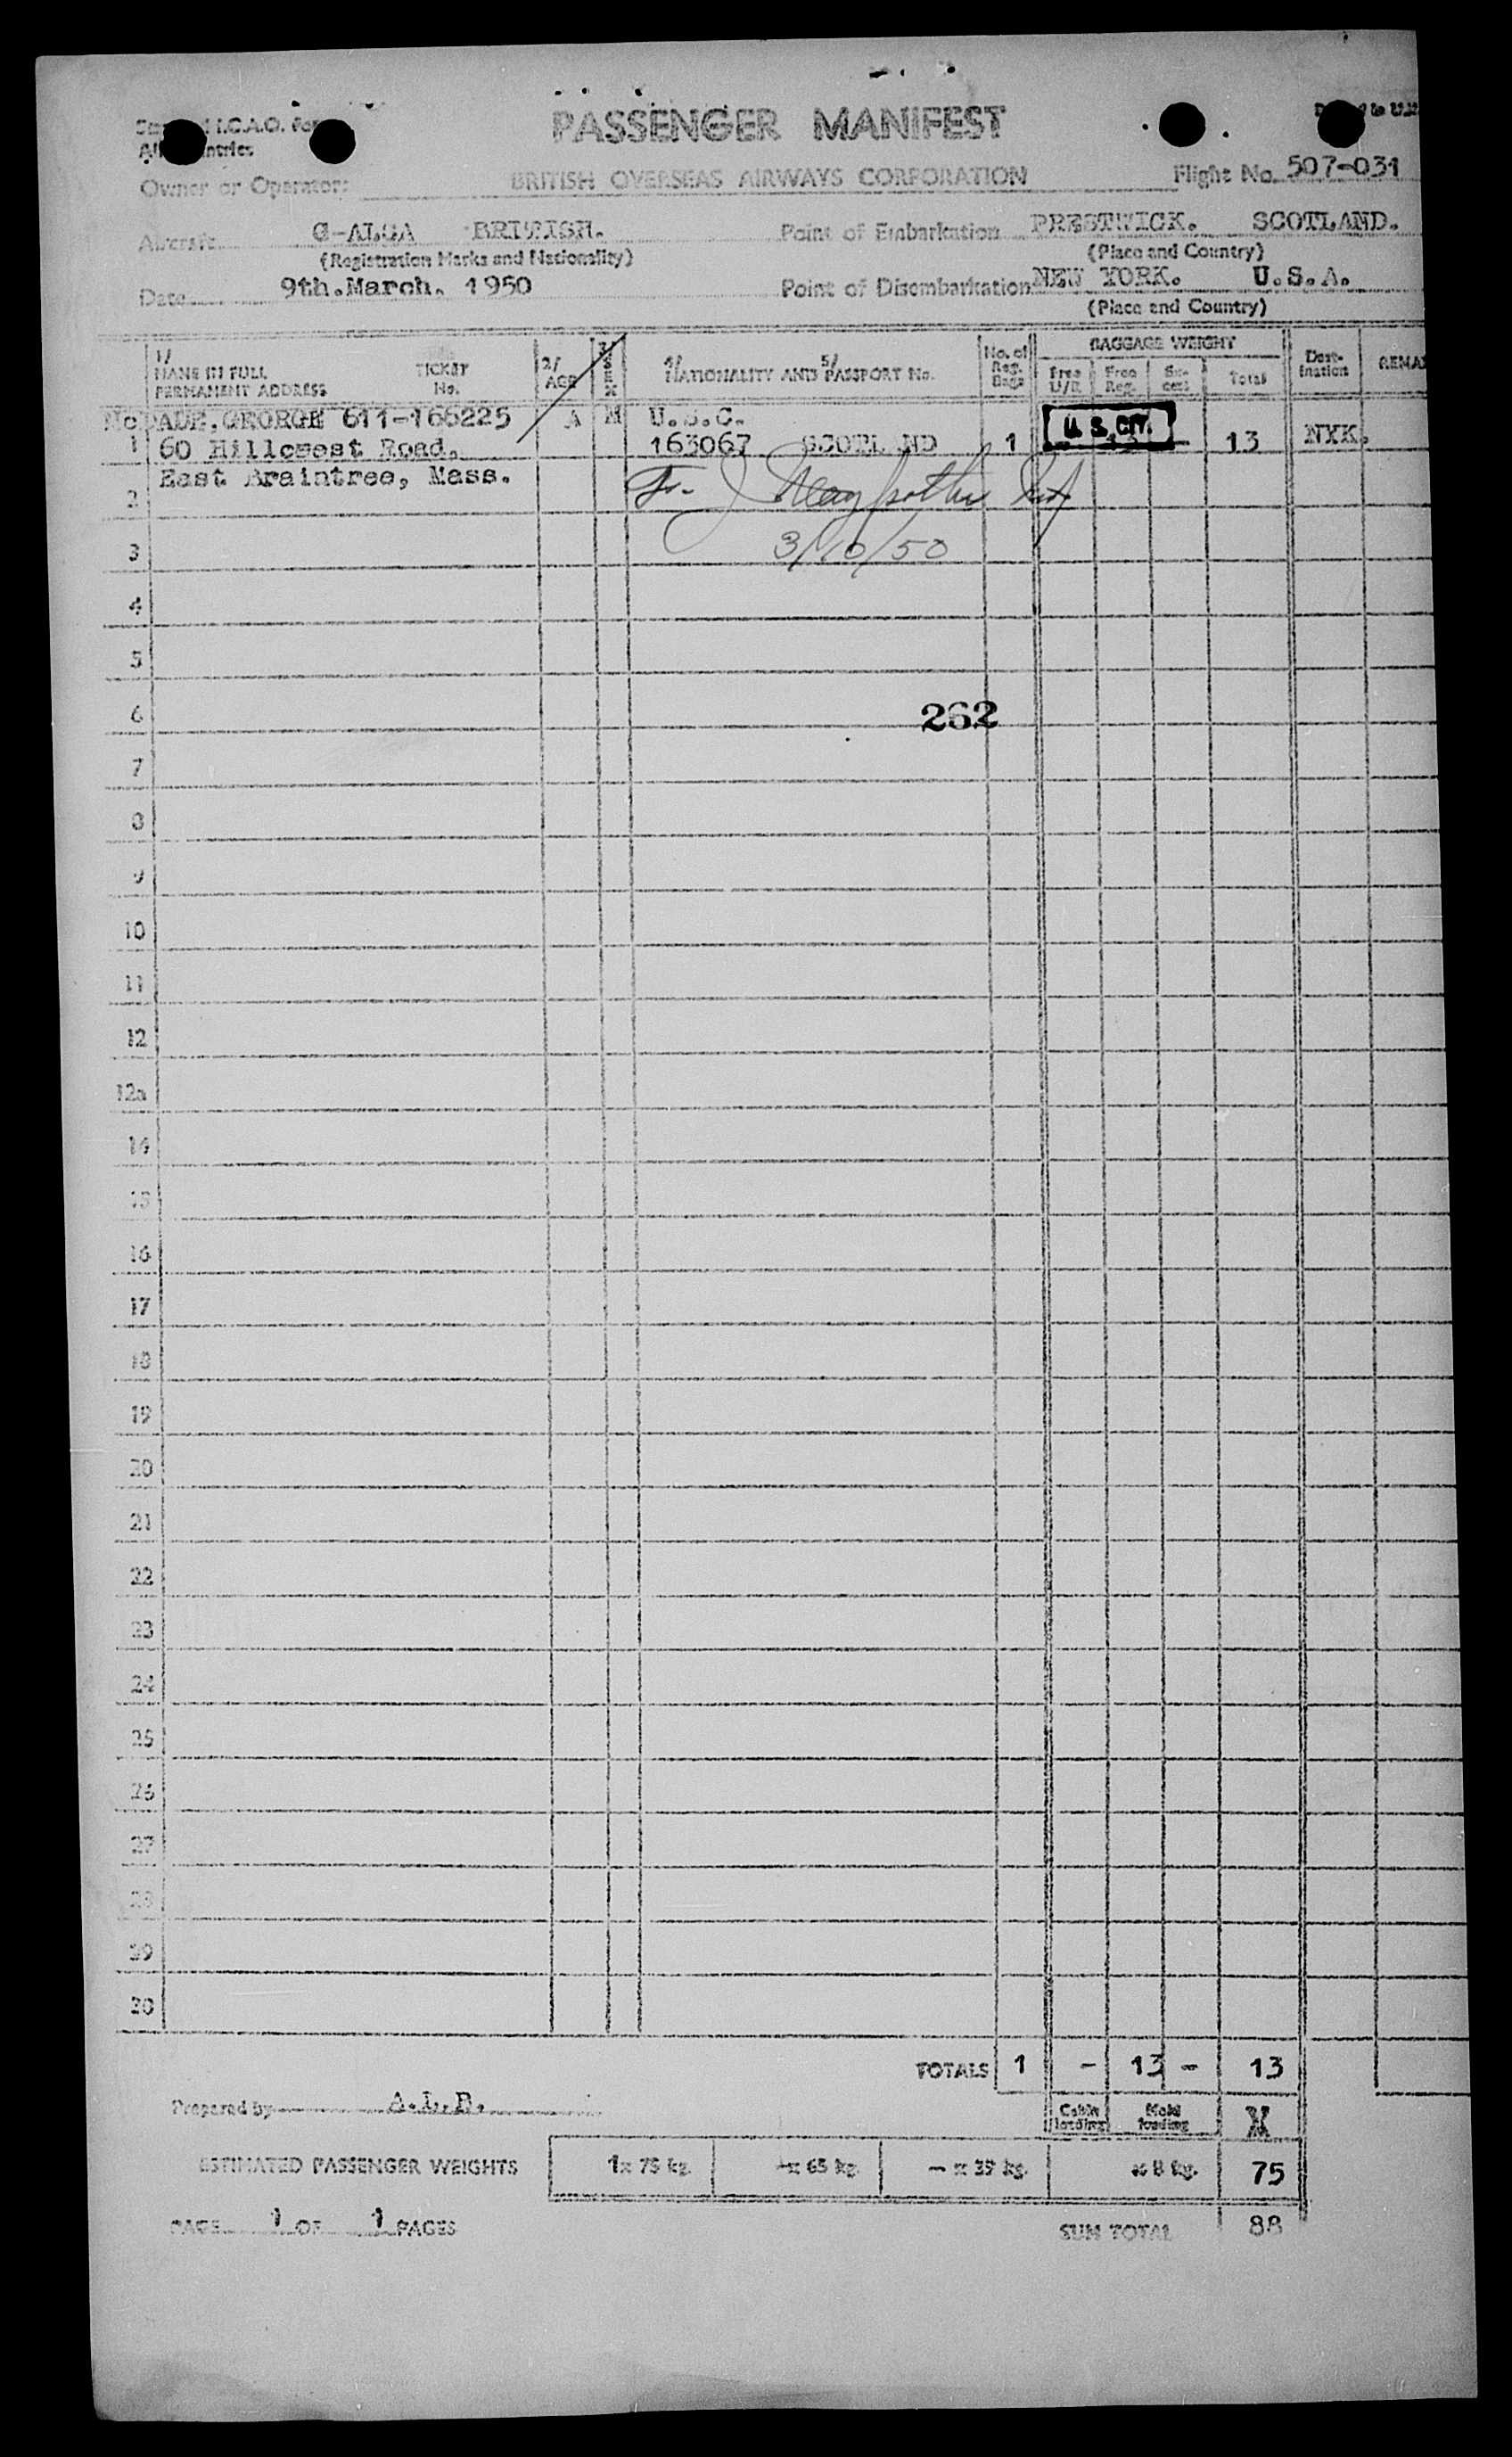 PASSENGER MANIFEST
Owner or Operator: BRITISH OVERSEAS AIRWAYS CORPORATION Flight No. 507-031
Aircraft G-ALSA BRITISH. Point of Embarkation PRESTWICK. SCOTLAND.
(Registration Marks and Nationality) (Place and Country)
Date 9th.March. 1950 Point of Disembarkation NEW YORK. U.S.A.
(Place and Country)
1/ NAME IN FULL PERMANENT ADDRESS TICKET No. 2/ AGE 3/ SEX 4/ NATIONALITY AND 5/ PASSPORT No. No. of Reg. Bags BAGGAGE WEIGHT Free U/R Free Reg. Ex-cess Total Dest-ination
611-166225 A M U.S.C.
1 60 Hillcrest Road, 163067 SCOTL ND 1 U.S. CIT. 13 NYK.
2 East Braintree, Mass.
3 3/10/50
4
5
6 262
7
8
9
10
11
12
12a
14
15
16
17
18
19
20
21
22
23
24
25
26
27
28
29
30
TOTALS 1 - 13 - 13
Prepared by A.L.B. Cabin loading Hold loading
ESTIMATED PASSENGER WEIGHTS 1x 75 kg. -x 65 kg. - x 39 kg. x 8 kg. 75
PAGE 1 OF 1 PAGES SUM TOTAL 88